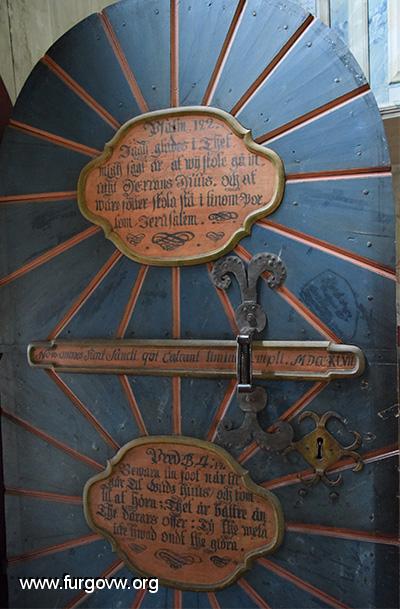 Psalm. 122.
Jagh glädes i Thet
migh sagt är at wij skole gå in
uthi Herrans Huus, och at
wåre fötter skola stå i tinom Por
tom Jerusalem.
Non omnes Sancti qui Calcant limina templi. MDCCXLVII
Pred. B. 4. 17.
Bewara tin foot när tu
går til Guds Huus och kom
til at höra: Thet är bättre än
the dårars offer: Ty the weta
icke hwad ondt the giöra.
www.furgovw.org